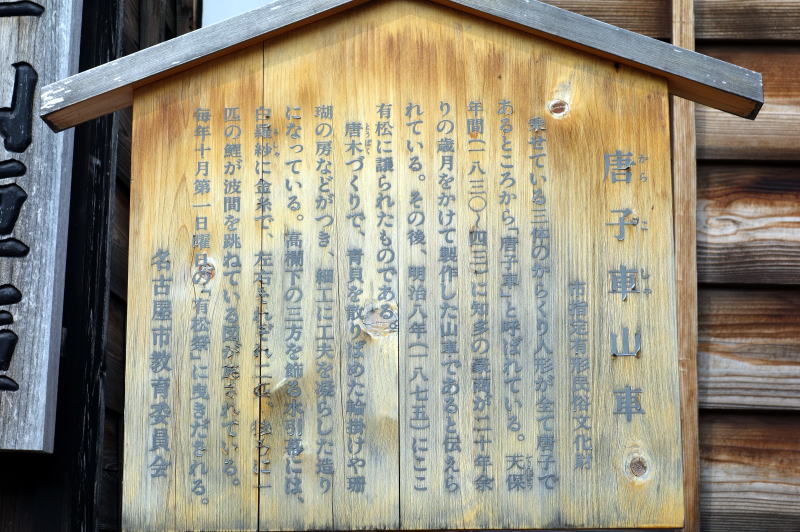 唐子車山車
からこしゃ
市指定有形民俗文化財
乗せている三体のからくり人形が全て唐子で
あるところから「唐子車」と呼ばれている。天保
てんぽう
年間(一八三〇~四三)に知多の豪商が二十年余
りの歳月をかけて製作した山車であると伝えら
れている。その後、明治八年(一八七五)にここ
有松に譲られたものである。
唐木づくりで、青貝を散りばめた輪掛けや珊
瑚の房などがつき、細工に工夫を凝らした造り
になっている。高欄下の三方を飾る水引幕には、
白羅紗に金糸で、左右それぞれ二匹、後ろに一
匹の鯉が波間を跳ねている図が施されている。
毎年十月第一日曜日の「有松祭」に曳きだされる。
名古屋市教育委員会